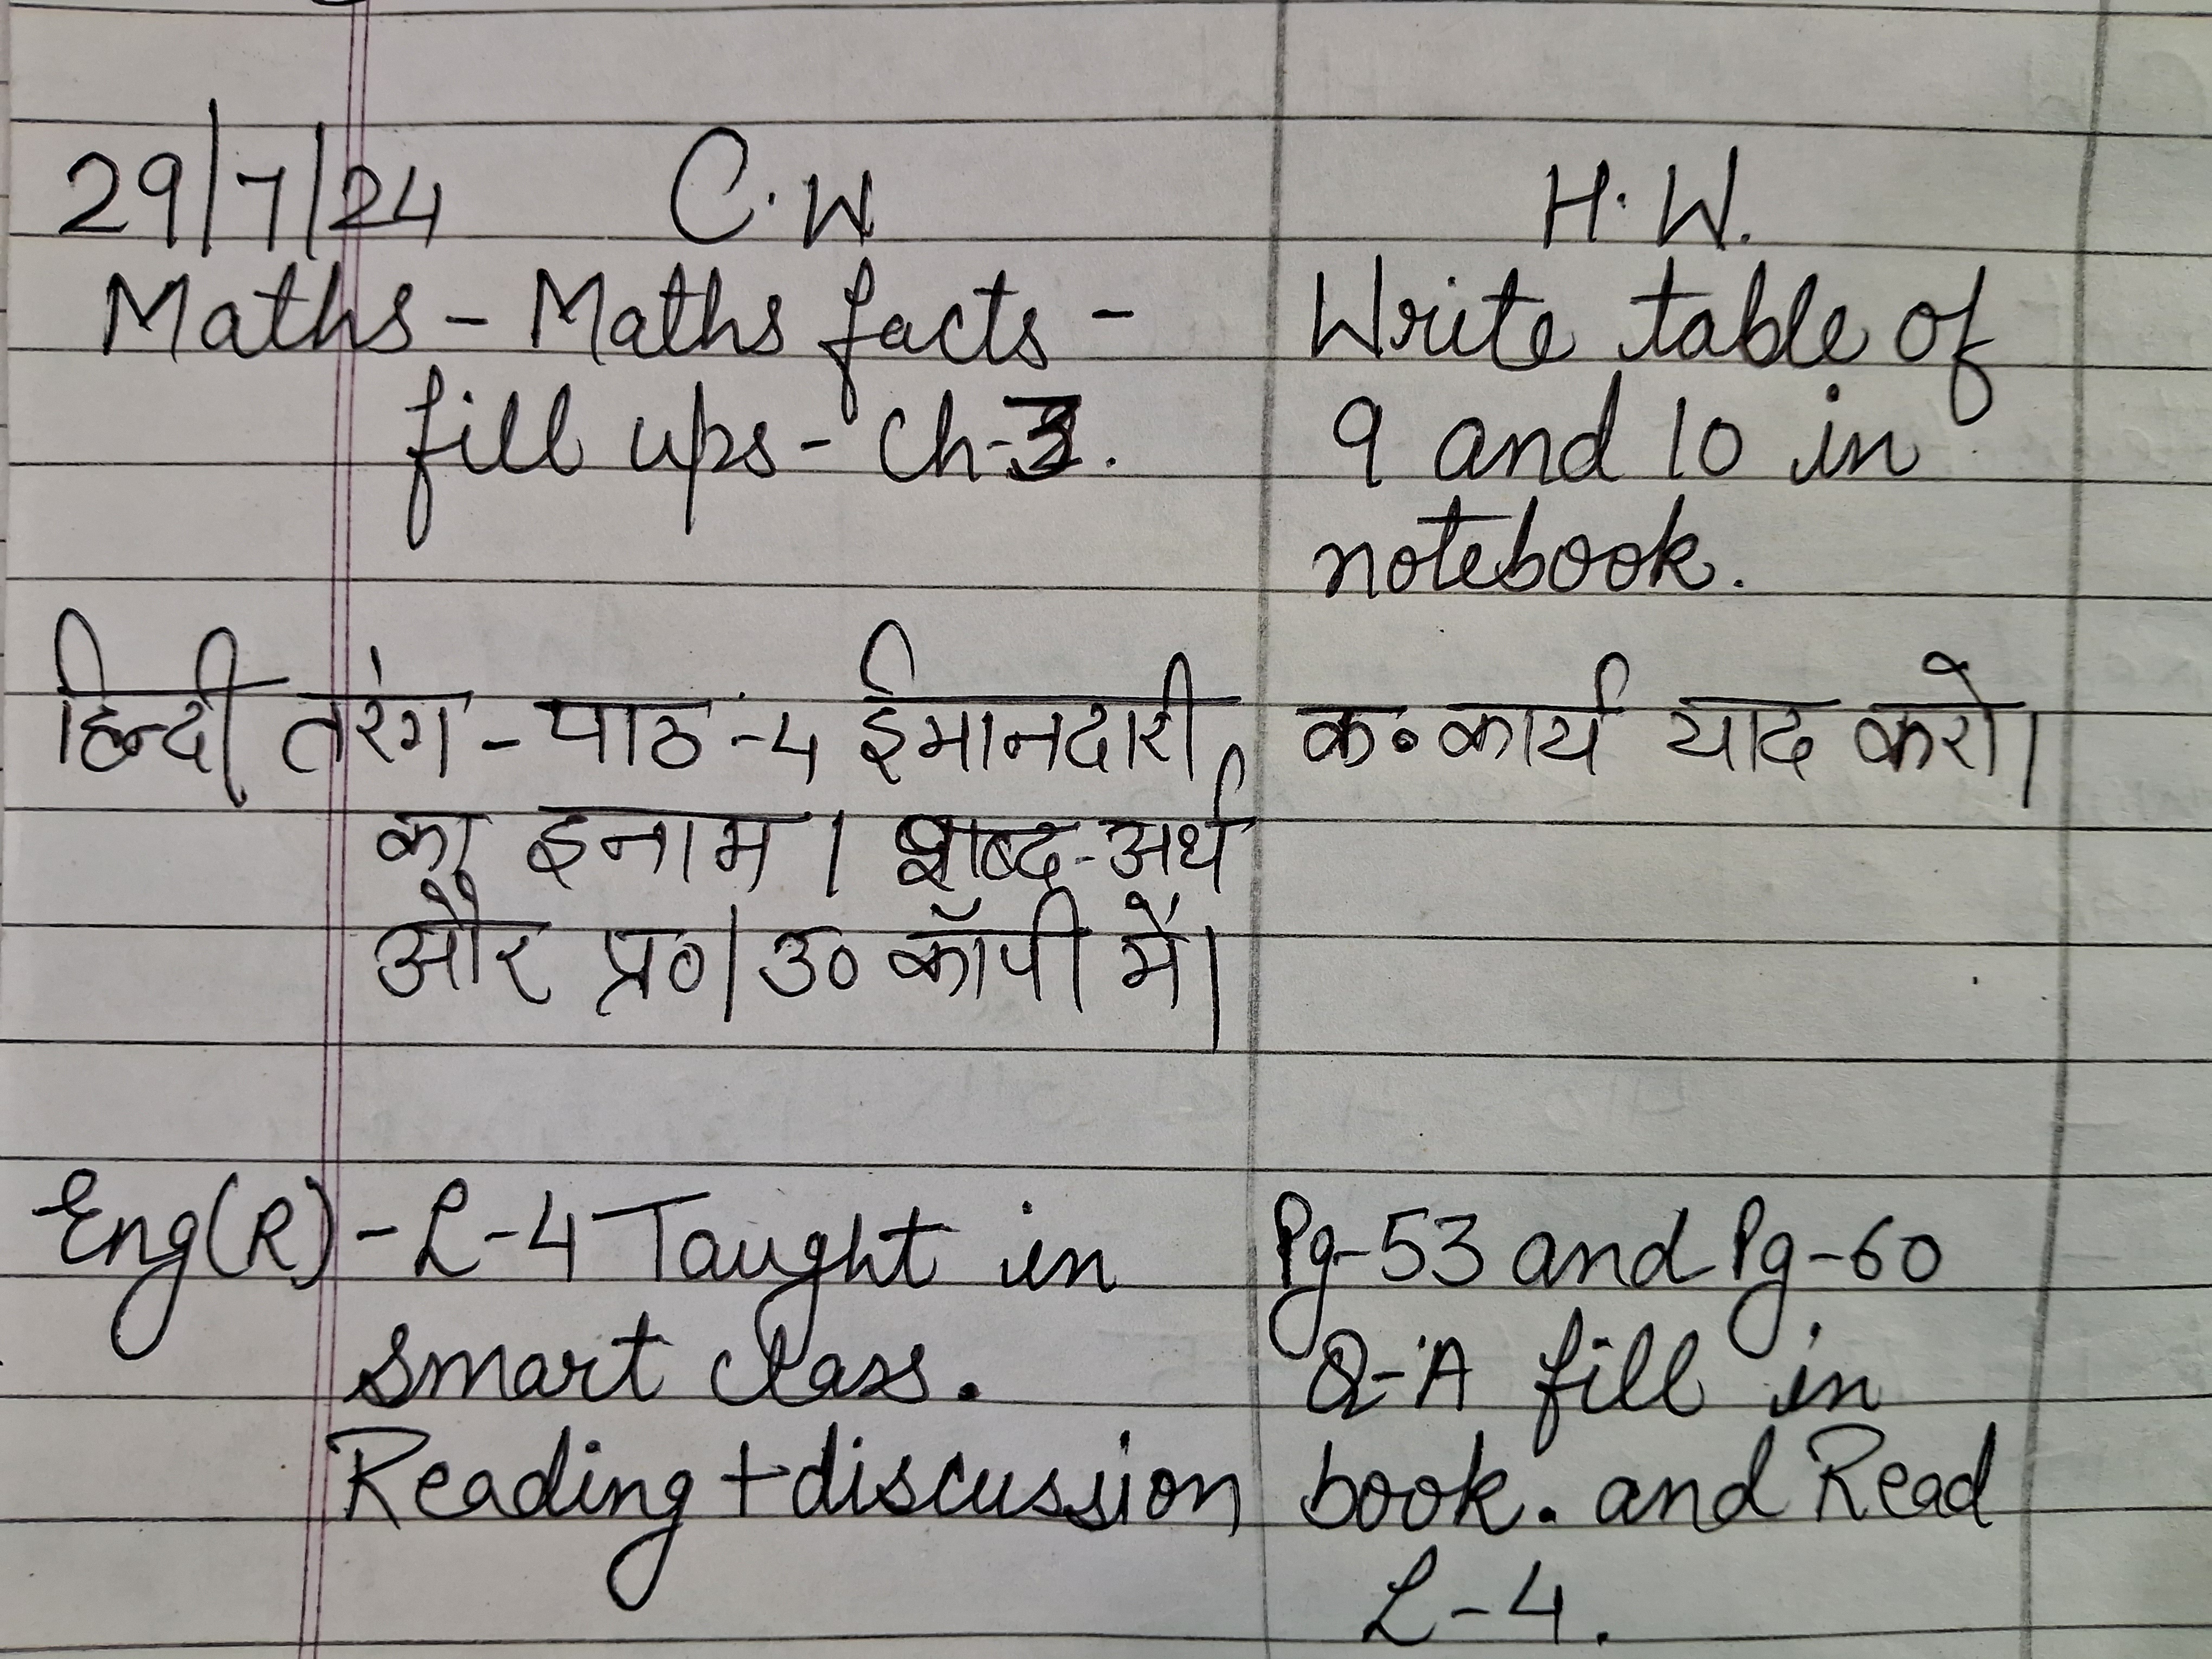 29/7/24 C.W H.W.
Maths - Maths facts - Write table of
fill ups - Ch-3. 9 and 10 in
notebook.
हिन्दी तरंग - पाठ -4 ईमानदारी क॰कार्य याद करो।
का इनाम। शब्द-अर्थ
और प्र०/उ० कॉपी में।
Eng(R) - L-4 Taught in Pg-53 and Pg-60
smart class. Q-A fill in
Reading + discussion book. and Read
L-4.